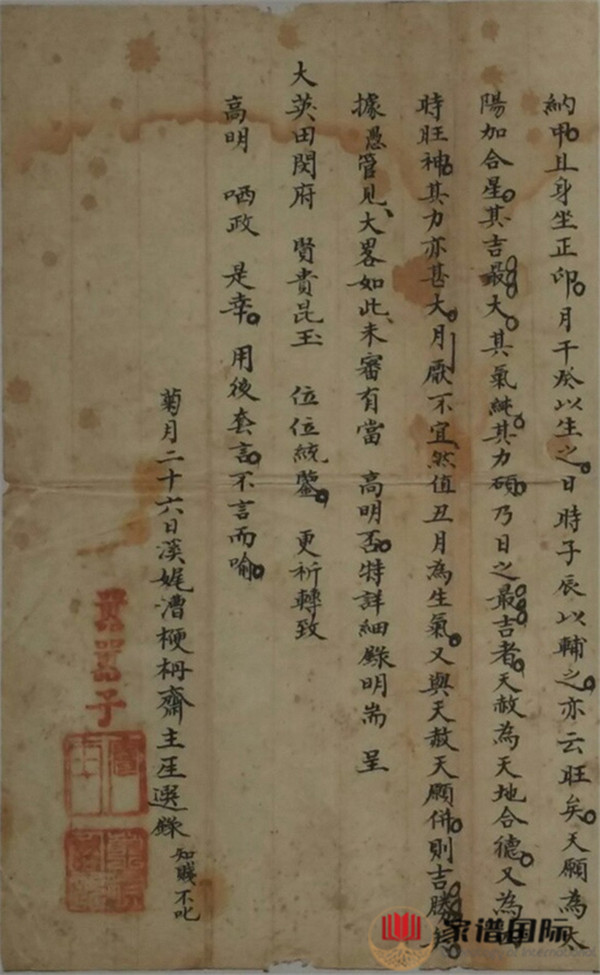 納甲。且身坐正印。月干癸以生之。日時子辰以輔之。亦云旺矣。天願為太
陽加合星。其吉最大。其氣純。其力碩。乃日之最吉者。天赦為天地合德。又為
時旺神。其力亦甚大。月厭不宜。然值丑月為生氣。又與天赦天願併。則吉勝
據愚管見、大畧如此、未審有當 高明否。特詳細錄明耑 呈
大英田閔府 賢貴昆玉 位位統鑒。 更祈轉致
高明 哂政 是幸。 用後套言。不言而喻。
菊月二十六日溪娓漕梗枬齋主 選錄 知賤不叱
囂囂子
家谱国际